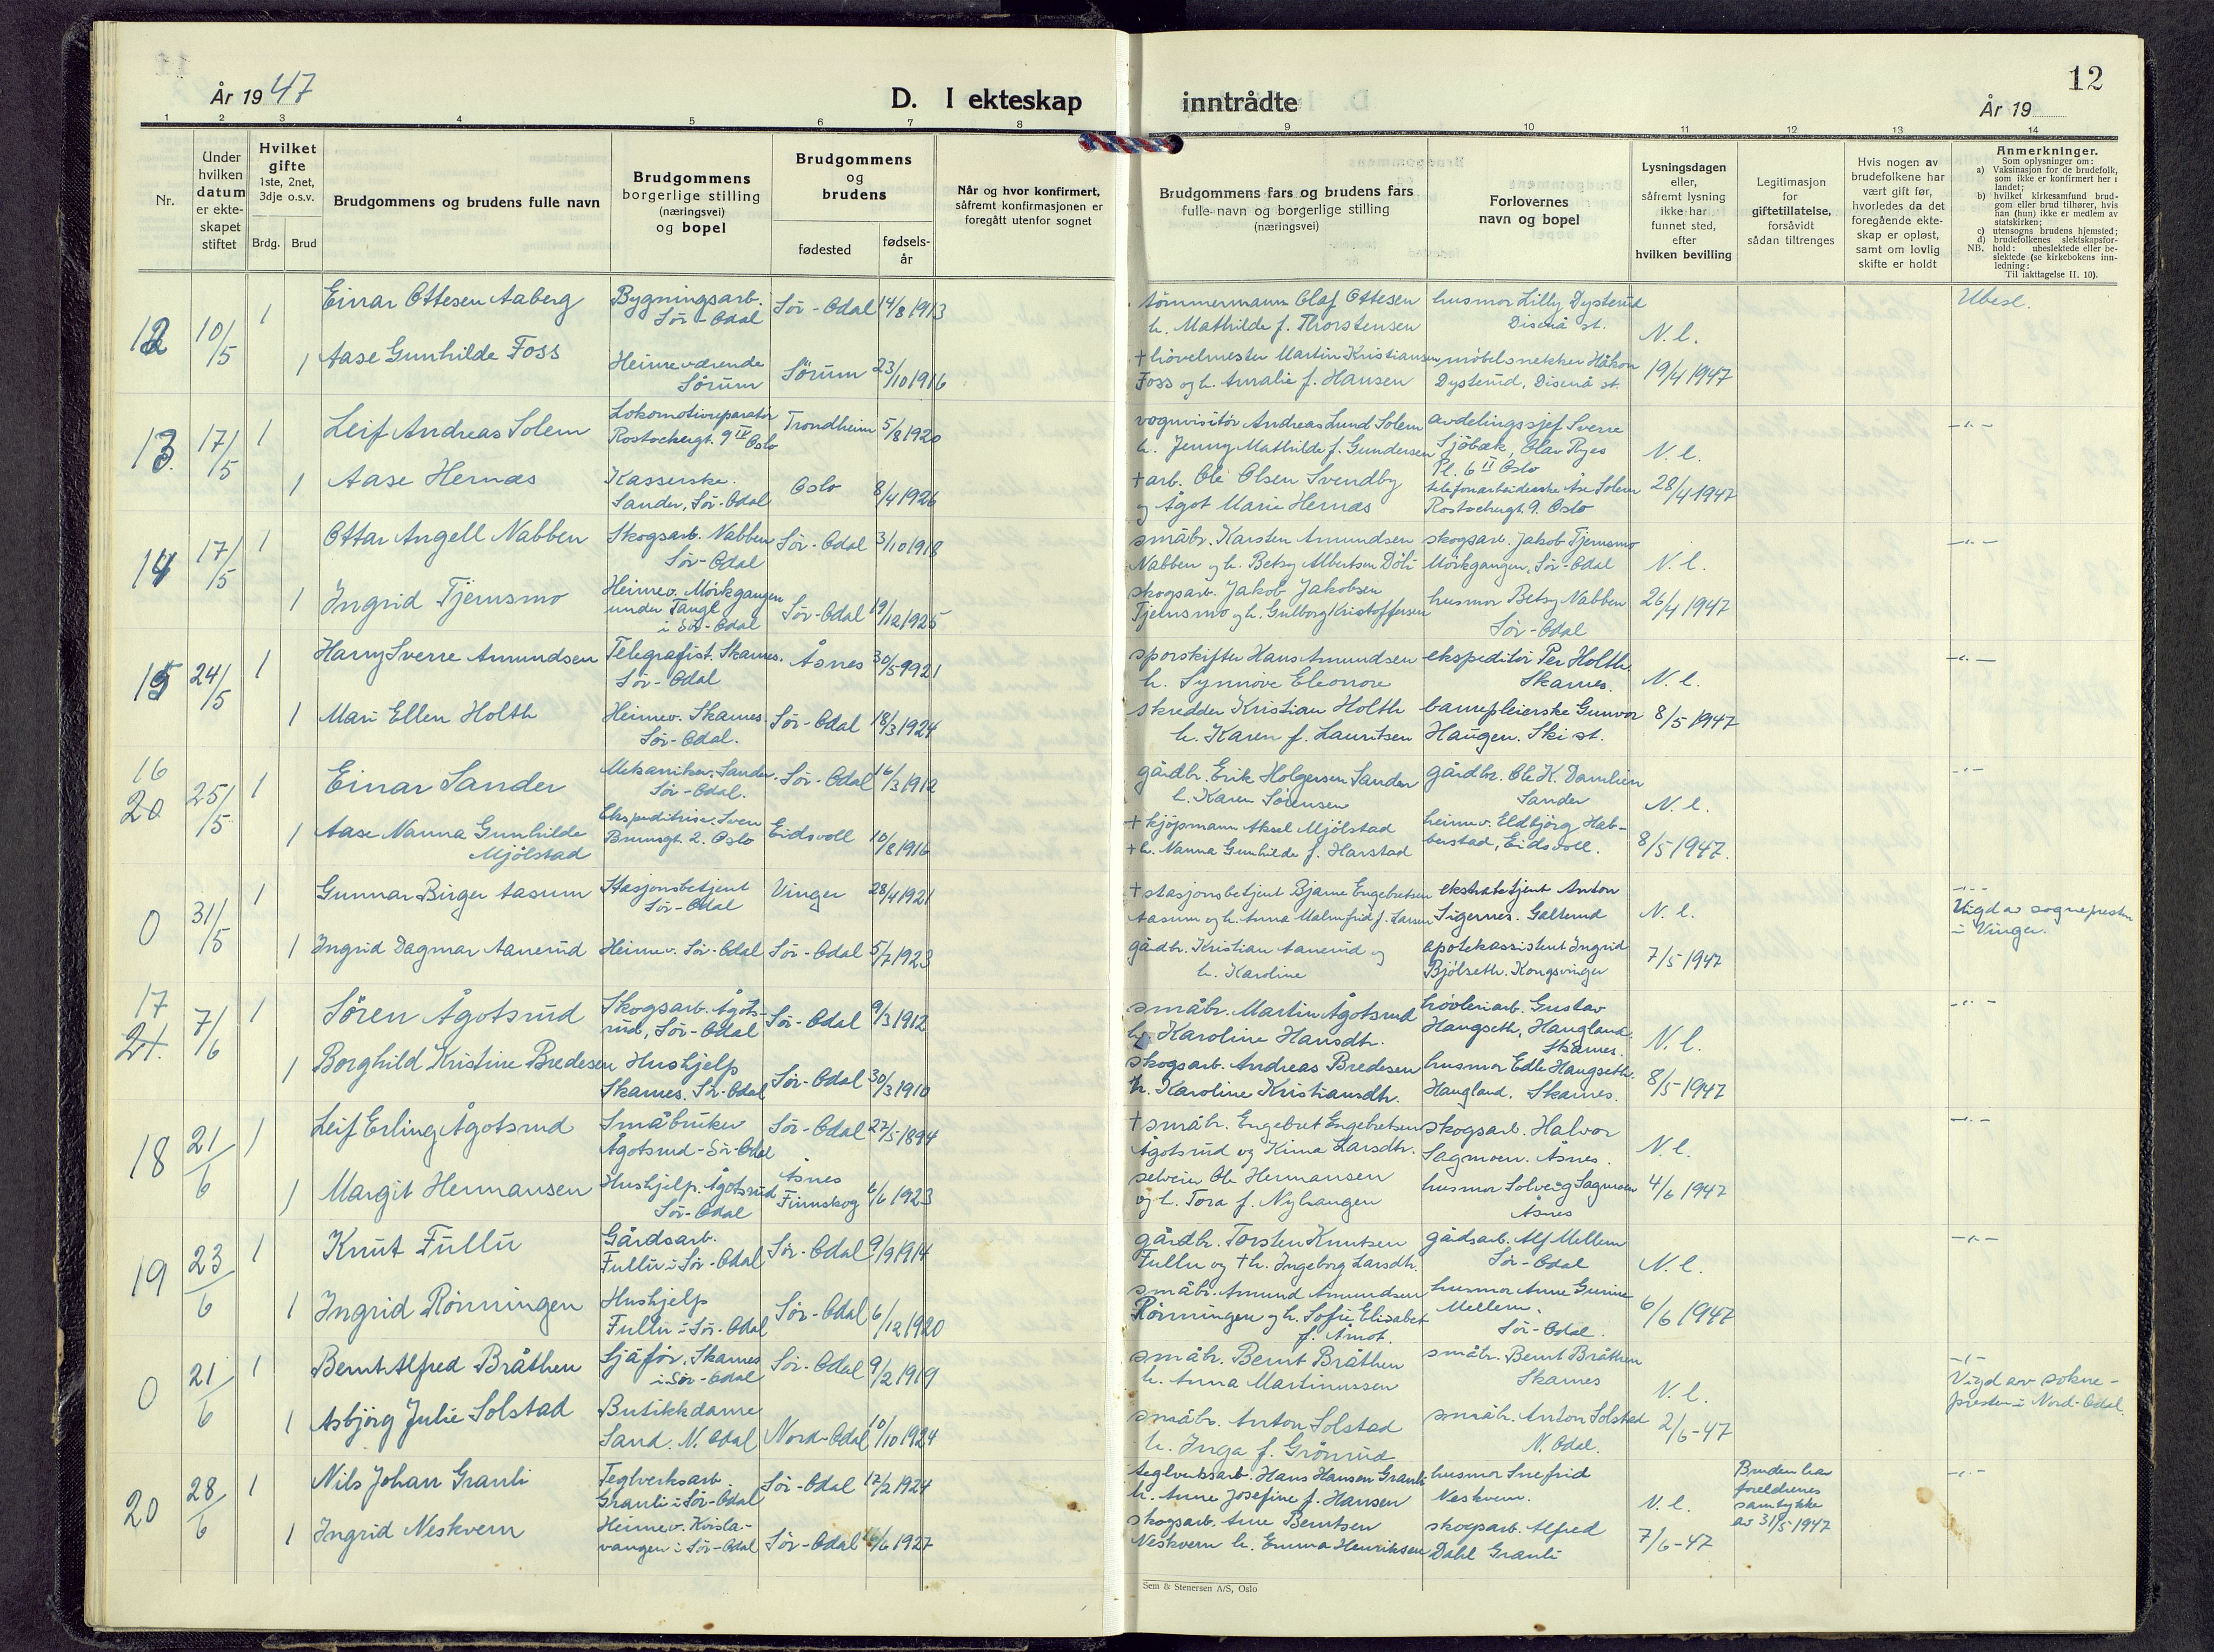 År 1947
D. I ekteskap inntrådte
12
År 19
1 2 3 4 5 6 7 8 9 10 11 12 13 14
Nr.
Under hvilken datum er ekteskapet stiftet
Hvilket gifte 1ste, 2net, 3dje o.s.v.
Brdg. Brud
Brudgommens og brudens fulle navn
Brudgommens borgerlige stilling (næringsvei) og bopel
Brudgommens og brudens
fødested
fødselsår
Når og hvor konfirmert, såfremt konfirmasjonen er foregått utenfor sognet
Brudgommens fars og brudens fars fulle navn og borgerlige stilling (næringsvei)
Forlovernes navn og bopel
Lysningsdagen eller, såfremt lysning ikke har funnet sted, efter hvilken bevilling
Legitimasjon for giftetillatelse, forsåvidt sådan tiltrenges
Hvis nogen av brudefolkene har vært gift før, hvorledes da det foregående ekteskap er opløst, samt om lovlig skifte er holdt
Anmerkninger.
Som oplysninger om:
a) Vaksinasjon for de brudefolk, som ikke er konfirmert her i landet;
b) hvilket kirkesamfund brudgom eller brud tilhører, hvis han (hun) ikke er medlem av statskirken;
c) utensogns brudens hjemsted;
d) brudefolkenes slektskapsforhold: ubeslektede eller beslektede (se kirkebokens innledning:
NB. Til iakttagelse II. 10).
12 10/5 1 Einar Ottesen Aaberg Bygningsarb. Sør-Odal Sør-Odal 14/8 1913 tømmermann Olaf Ottesen h. Mathilde f. Thorstensen husmor Lilly Dysterud Disenå st. N. l. Ubesl.
1 Aase Gunhilde Foss Heimeværende Sørum Sørum 23/10 1916 + høvelmester Martin Kristiansen Foss og h. Amalie f. Hansen møbelsnekker Håkon Dysterud, Disenå st. 19/4 1947
13. 17/5 1 Leif Andreas Solem Lokomotivreparatør Rostockergt. 9 IV Oslo Trondheim 5/8 1920 vognvisitør Andreas Lund Solem h. Jenny Mathilde f. Gundersen avdelingssjef Sverre Sjöbæk, Olav Ryes Pl. 6 II Oslo N. l. -"-
1 Aase Hernæs Kasserske. Sander, Sør-Odal Oslo 8/4 1926 + arb. Ole Olsen Svendby og Ågot Marie Hernæs telefonarbeiderske Åse Solem Rostockergt. 9. Oslo 28/4 1947
14 17/5 1 Ottar Angell Nabben Skogsarb. Nabben Sør-Odal Sør-Odal 3/10 1918 småbr. Karsten Amundsen Nabben og h. Betsy Albertsen Döli skogsarb. Jakob Tjernsmo Mörkgangen, Sør-Odal N. l. -"-
1 Ingrid Tjernsmo Heimev. Mörkgangen under Tangl i Sör-Odal Sør-Odal 19/12 1925 skogsarb. Jakob Jakobsen Tjernsmo og h. Gulborg Kristoffersen husmor Betsy Nabben Sør-Odal 26/4 1947
15 24/5 1 Harry Sverre Amundsen Telegrafist. Skarnes. Sør-Odal Åsnes 30/5 1921 sporskifter Hans Amundsen h. Synnöve Eleonore ekspeditör Per Holth Skarnes. N. l. -"-
1 Mari Ellen Holth Heimev. Skarnes. Sør-Odal. Sør-Odal 18/3 1924 skredder Kristian Holth h. Karen f. Lauritsen barnepleierske Gunvor Haugen. Ski st. 8/5 1947
16 20 25/5 1 Einar Sander Mekaniker. Sander. Sør-Odal. Sør-Odal 16/3 1912 gårdbr. Erik Holgersen Sander h. Karen Sörensen gårdbr. Ole K. Damlien Sander N. l. -"-
1 Aase Nanna Gunhilde Mjölstad Ekspeditrise. Sven Brunsgt. 2. Oslo Eidsvoll 10/8 1916 + kjöpmann Aksel Mjölstad + h. Nanna Gunhilde f. Harstad heimev. Eldbjörg Habberstad, Eidsvoll. 8/5 1947.
0 31/5 1 Gunnar Birger Aasum Stasjonsbetjent Sör-Odal Vinger 28/4 1921 + stasjonsbetjent Bjarne Engebretsen Aasum og h. Anna Malmfrid f. Larsen ekstrabetjent Anton Sigernes. Galterud N. l. -"- Vigd av sognepresten i Vinger.
1 Ingrid Dagmar Aanerud Heimev. Sør-Odal Sør-Odal 5/7 1923 gårdbr. Kristian Aanerud og h. Karoline apotekassistent Ingrid Bjölseth. Kongsvinger 7/5 1947
17 21. 7/6 1 Sören Ågotsrud Skogsarb. Ågotsrud, Sør-Odal Sør-Odal 9/3 1912 småbr. Martin Ågotsrud h. Karoline Hansdtr. hövleriarb. Gustav Haugseth, Haugland. Skarnes. N. l. -"-
1 Borghild Kristine Bredesen Hushjelp Skarnes. Sör-Odal Sør-Odal 30/3 1910 skogsarb. Andreas Bredesen h. Karoline Kristiansdtr. husmor Edle Haugseth. Haugland. Skarnes. 8/5 1947
18 21/6 1 Leif Erling Ågotsrud Småbruker Ågotsrud - Sör-Odal Sør-Odal 27/5 1894 + småbr. Engebret Engebretsen Ågotsrud og Kima Larsdtr. skogsarb. Halvor Sagmoen. Åsnes. N. l. -"-
1 Margit Hermansen Hushjelp. Ågotsrud Sör-Odal Åsnes Finnskog 6/6 1923 selveier Ole Hermansen og h. Tora f. Nyhaugen husmor Solveig Sagmoen Åsnes 4/6 1947
19 23/6 1 Knut Fullu Gårdsarb. Fullu i Sør-Odal Sør-Odal 9/9 1914 gårdbr. Torsten Knutsen Fullu og + h. Ingeborg Larsdtr. gårdsarb. Alf Mellem Sör-Odal N. l. -"-
1 Ingrid Rönningen Hushjelp Fullu i Sör-Odal Sør-Odal 6/12 1920 småbr. Amund Amundsen Rönningen og h. Sofie Elisabet f. Åmot. husmor Anne Gurine Mellem. Sör-Odal. 6/6 1947
0 21/6 1 Bernt Alfred Bråthen Sjåför. Skarnes i Sör-Odal Sør-Odal 9/2 1919 småbr. Bernt Bråthen h. Anna Martinussen småbr. Bernt Bråthen Skarnes N. l. -"- Vigd av soknepresten i Nord-Odal.
1 Asbjörg Julie Solstad Butikkdame Sand. N. Odal Nord-Odal 10/10 1924 småbr. Anton Solstad h. Inga f. Grönrud småbr. Anton Solstad N. Odal. 2/6-47
20 28/6 1 Nils Johan Granli Teglverksarb. Granli i Sör-Odal Sør-Odal 17/2 1924 teglverksarb. Hans Hansen Granli h. Anne Josefine f. Hansen husmor Snefrid Neskvern. N. l. Bruden har foreldrenes samtykke av 31/5 1947 -"-
1 Ingrid Neskvern Heimev. Kvislavangen i Sör-Odal Sør-Odal /6 1927 skogsarb. Arne Berntsen Neskvern h. Emma Henriksen skogsarb. Alfred Dahl Granli 7/6-47
Sem & Stenersen A/S, Oslo